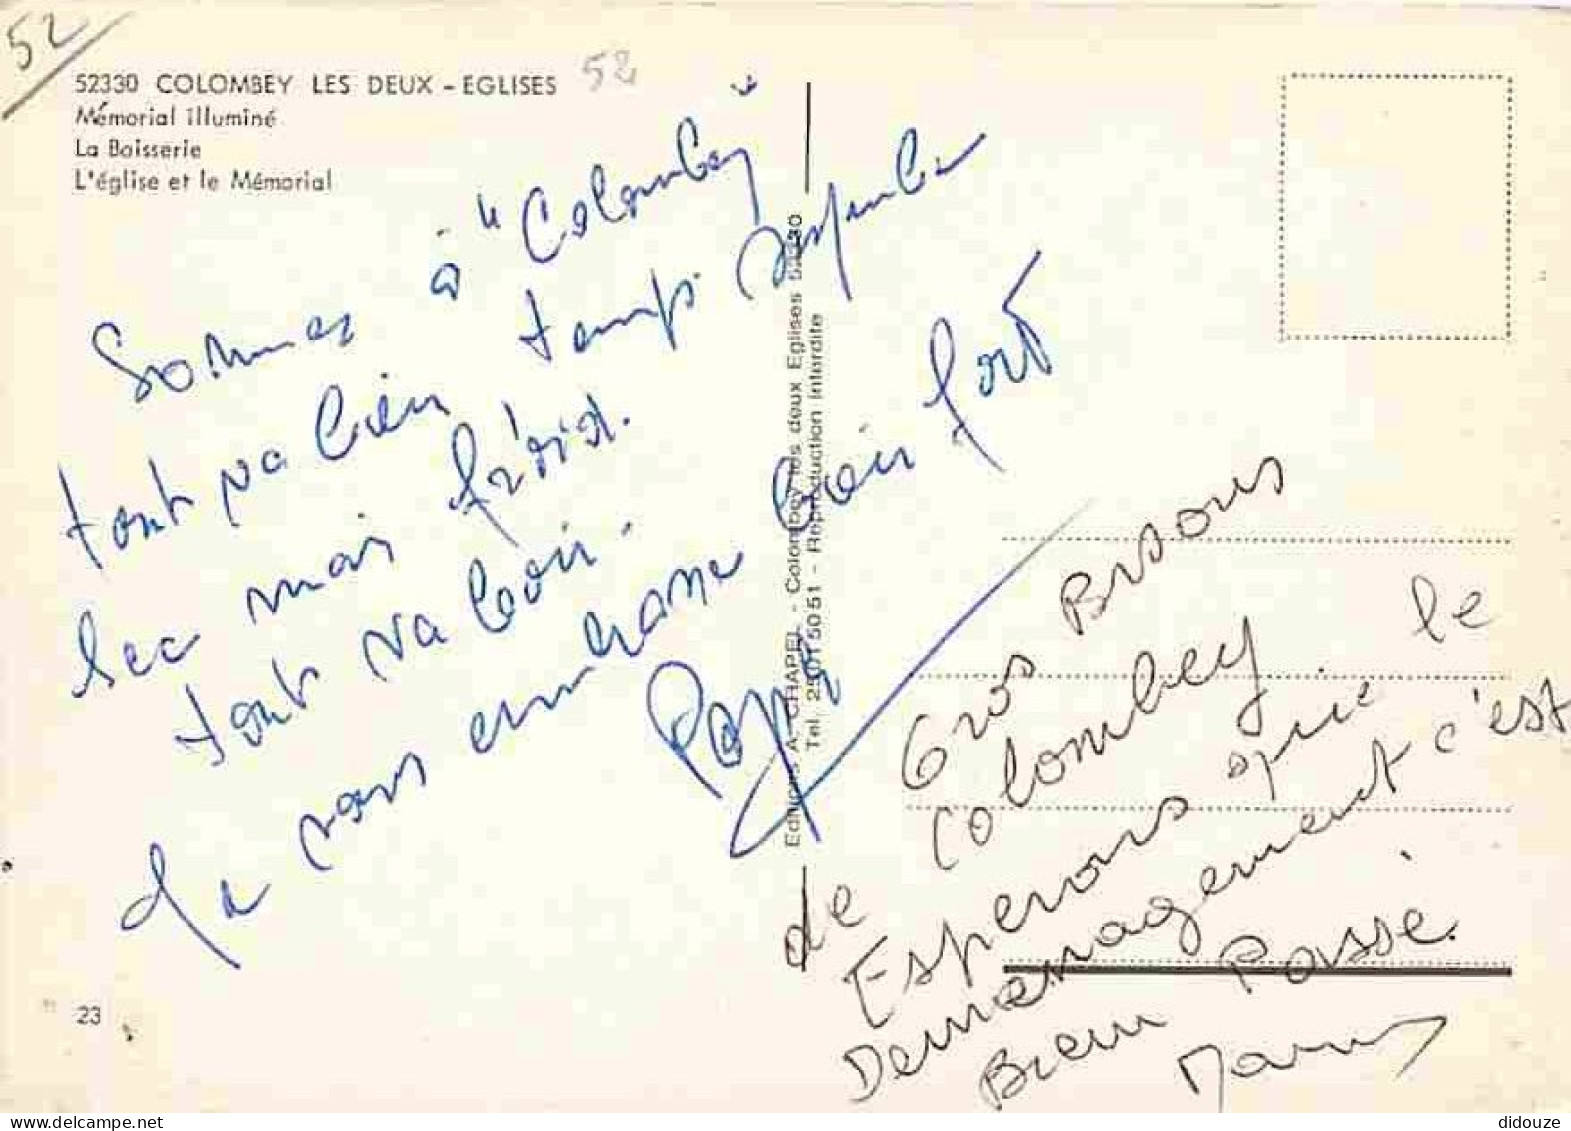 52
52330 COLOMBEY LES DEUX - EGLISES
52
Mémorial illuminé
La Boisserie
L'église et le Mémorial
Sommes à "Colombey"
tout va bien temps superbe
sec mais froid.
tout va bien.
Je vous embrasse bien fort
Papa
Editions A. CHAPEL - Colombey les deux Eglises 52330
Tel. 2 5 01 50 51 - Reproduction Interdite
Gros Bisous
de Colombey
Esperons que le
Demenagement c'est
Bien Passé.
23
didouze